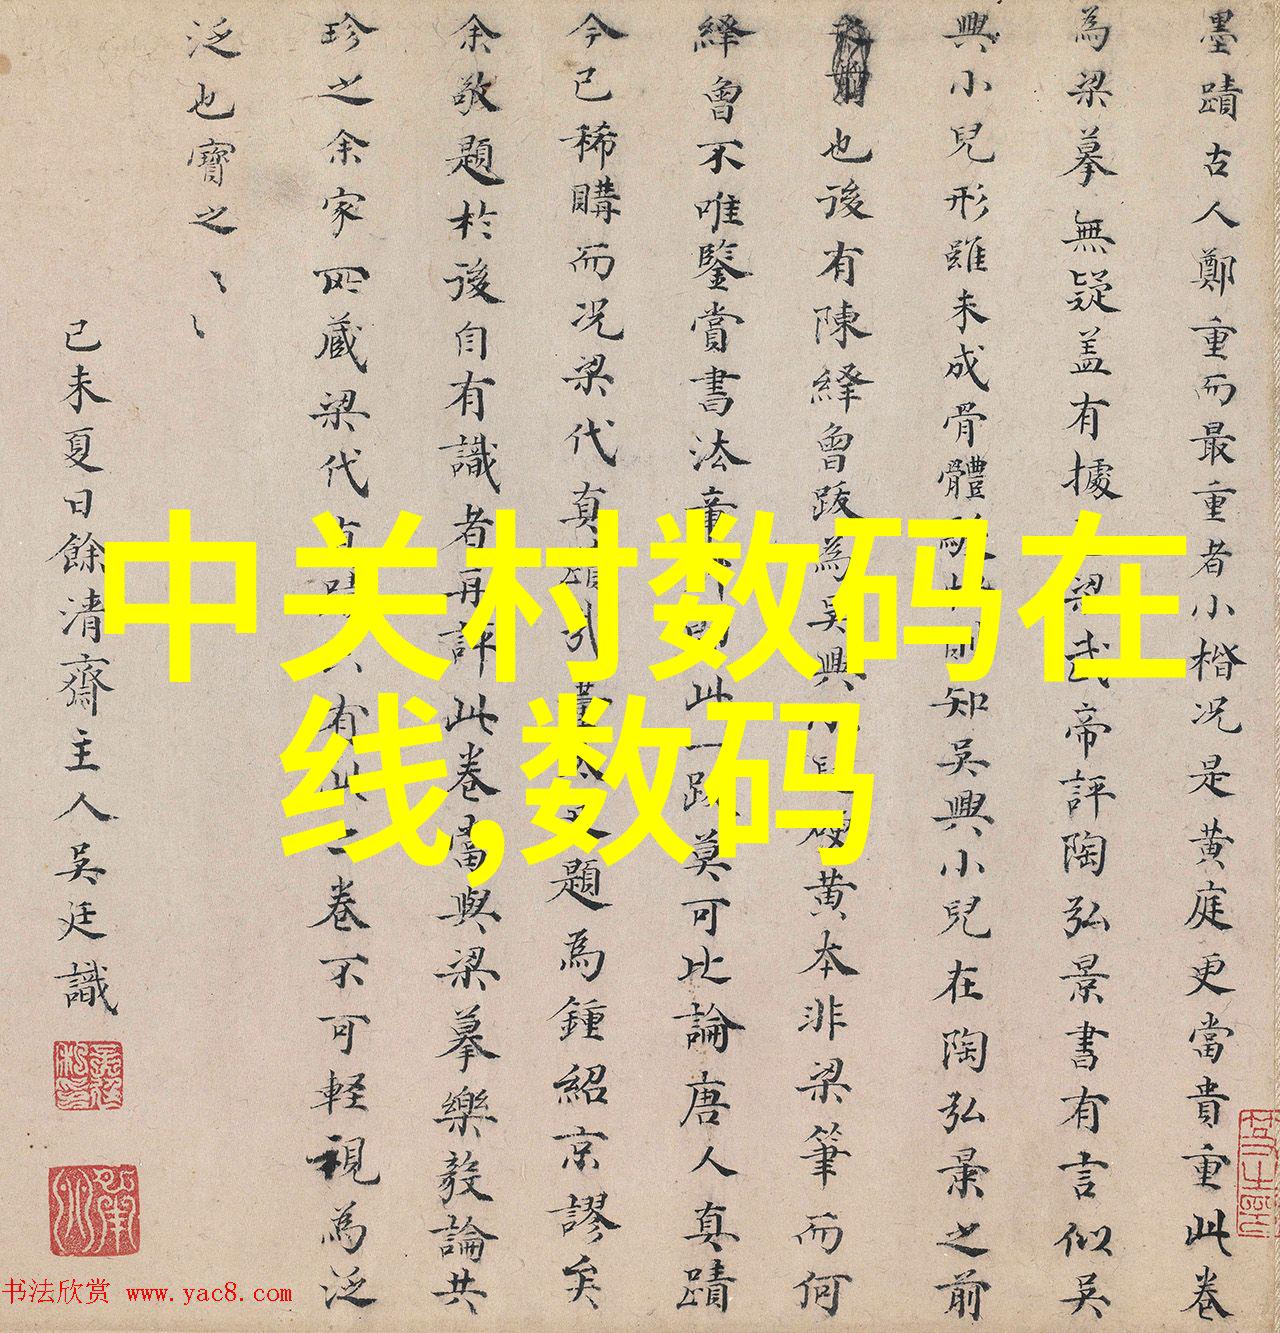 墨蹟古人鄭重而最重者小楷况是黄庭更當貴重此卷
為梁摹無疑盖有據梁武帝評陶弘景書有言似吴
興小兒形雖未成骨體知吴興小兒在陶弘景之前
也後有陳繹曾跋為吴興黄本非梁筆而何
繹曾不唯鑒賞書法此一跋莫可比論唐人真蹟
今已稀購而况梁代真題為鍾紹京謬矣
余敬題於後自有識者再評此卷當與梁摹樂毅論共
珍之余家所藏梁代有此二卷不可軽視為泛
泛也寶之〻〻
已未夏日餘清齋主人吴廷識
中关村数码在
线,数码
书法欣赏 www.yac8.com